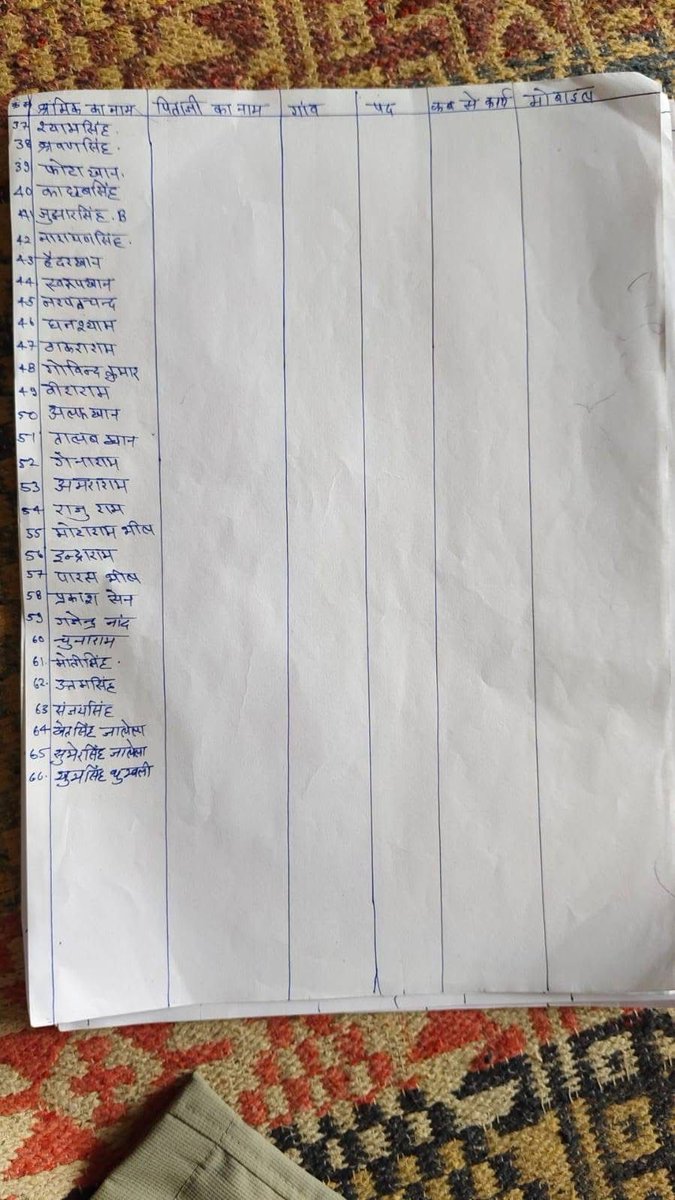 क्र.स. श्रमिक का नाम पिताजी का नाम गांव पद कब से कार्य मोबाइल
37 श्यामसिंह.
38 श्रवणसिंह.
39 फोटा खान.
40 कालुबसिंह
41 जुझारसिंह. B
42 नारायणसिंह.
43 हैदरखान
44 स्वरूपखान
45 नरपतचन्द
46 घनश्याम
47 ठाकराराम
48 गोविन्द कुमार
49 वीराराम
50 अलफखान
51 तालब खान
52 जैनाराम
53 अमराराम
54 राजु राम
55 मोटाराम भील
56 इन्द्राराम
57 पारस भील
58 प्रकाश सेन
59 गजेन्द्र चांद
60 चुनाराम
61. मोतीसिंह.
62. उत्तमसिंह
63 संजयसिंह
64 खेतसिंह जालेला
65 सुमेरसिंह जालेला
66. शुभसिंह